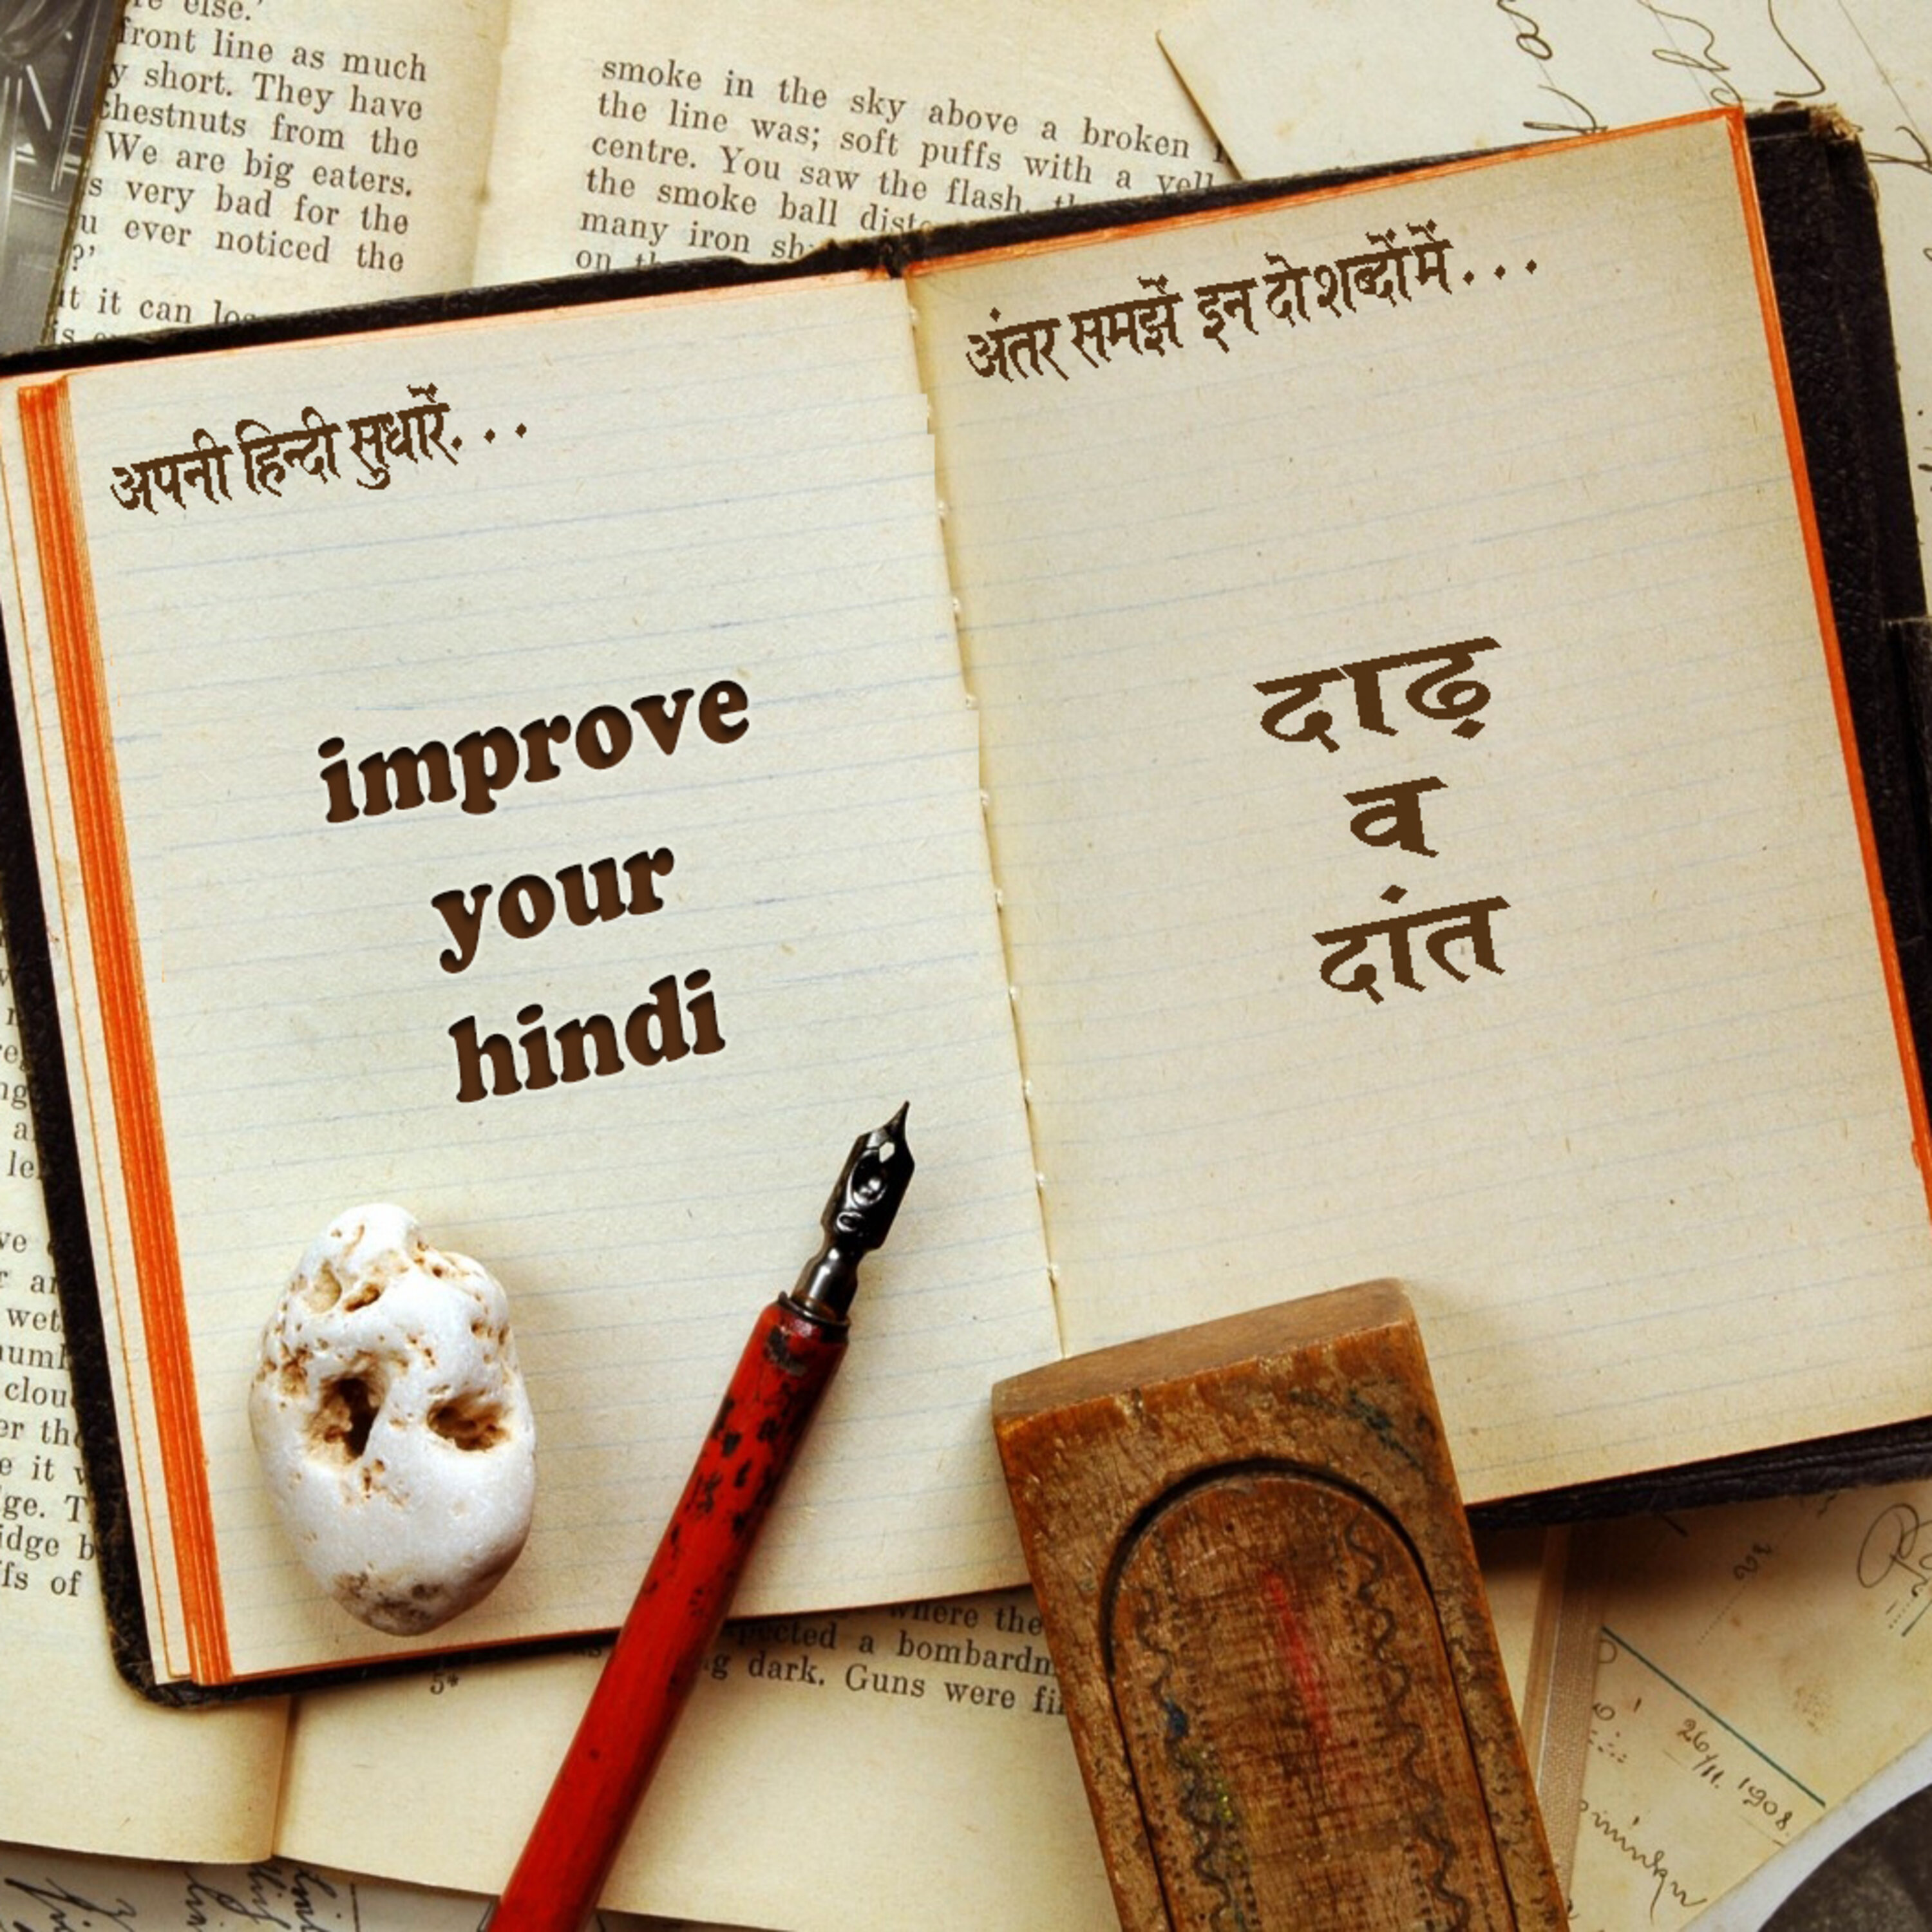 re else.'
front line as much
y short. They have
chestnuts from the
We are big eaters.
s very bad for the
u ever noticed the
?'
it it can
smoke in the sky above a broken
the line was; soft puffs with a yell
centre. You saw the flash,
the smoke ball
many iron
on
अपनी हिन्दी सुधारें...
improve
your
hindi
अंतर समझें इन दो शब्दों में...
दाढ़
व
दांत
wet
clou
er the
e it
ge. T
idge b
fs of
where the
pected a bombardm
g dark. Guns were fi
5*
26/11. 1908.